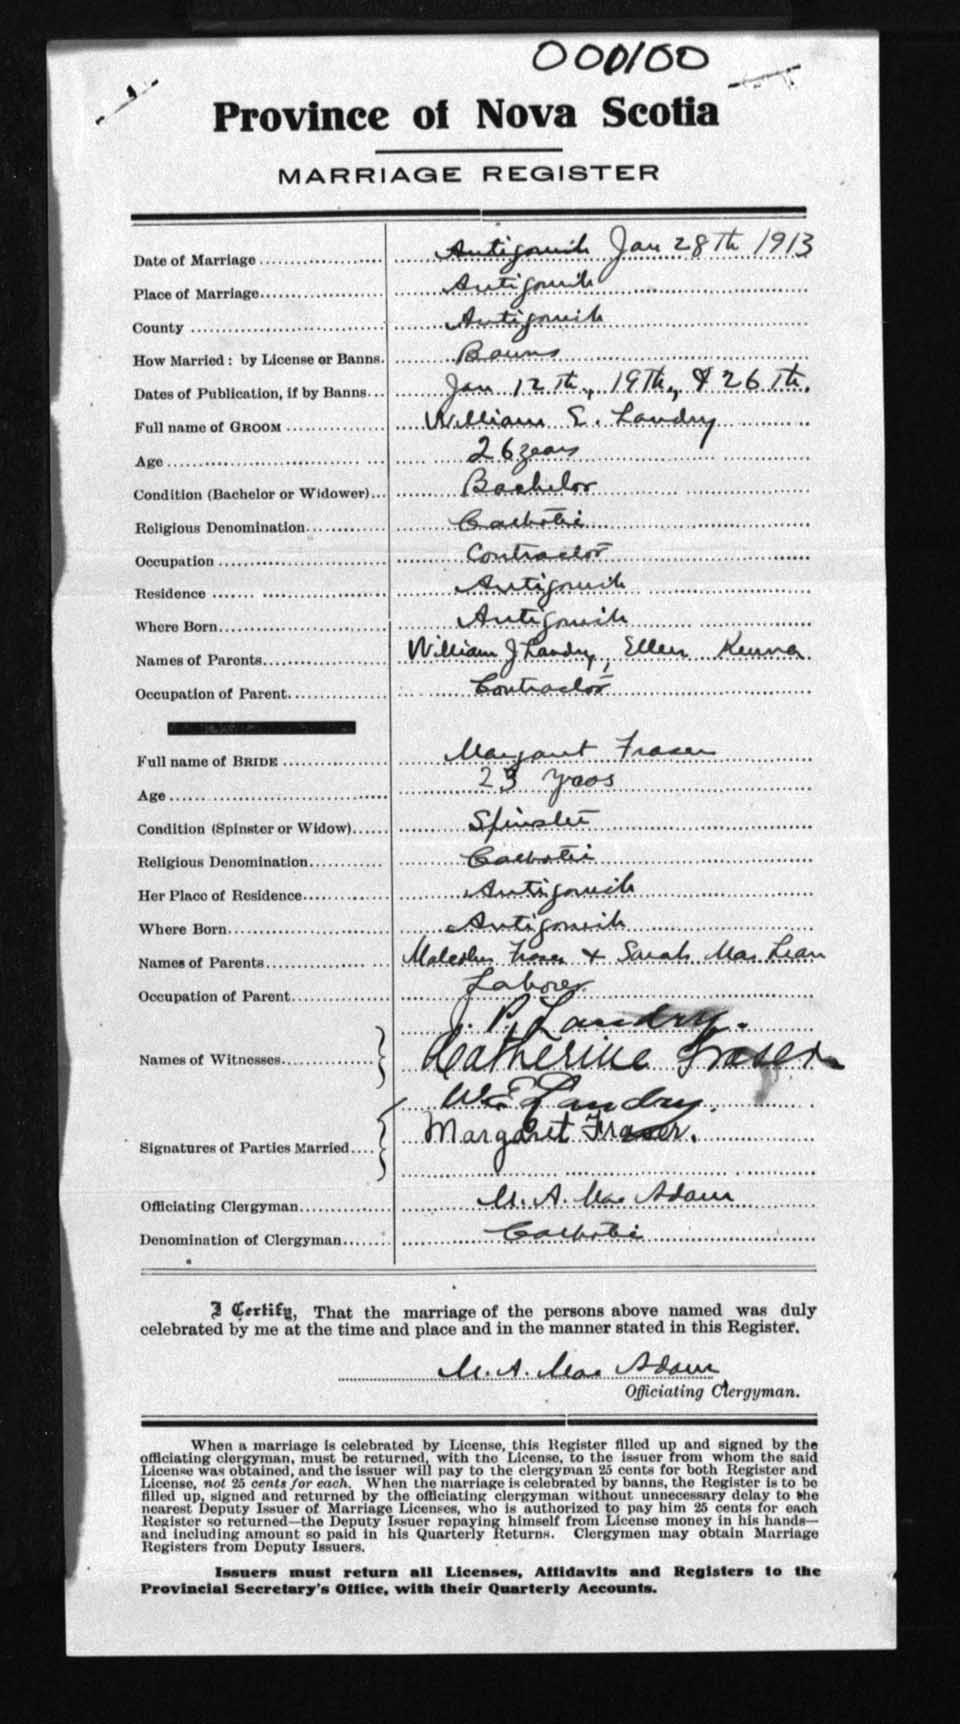 000100
Province of Nova Scotia
MARRIAGE REGISTER
Date of Marriage Antigonish Jan 28th 1913
Place of Marriage Antigonish
County Antigonish
How Married: by License or Banns. Banns
Dates of Publication, if by Banns Jan 12th, 19th, & 26th.
Full name of GROOM William E. Landry
Age 26 years
Condition (Bachelor or Widower) Bachelor
Religious Denomination Catholic
Occupation Contractor
Residence Antigonish
Where Born Antigonish
Names of Parents William J Landry, Ellen Kenna
Occupation of Parent Contractor
Full name of BRIDE Margaret Fraser
Age 23 years
Condition (Spinster or Widow) Spinster
Religious Denomination Catholic
Her Place of Residence Antigonish
Where Born Antigonish
Names of Parents Malcolm Fraser & Sarah MacLean
Occupation of Parent Laborer
J. P. Landry.
Names of Witnesses Catherine Fraser
W E Landry.
Margaret Fraser.
Signatures of Parties Married
Officiating Clergyman M. A. MacAdam
Denomination of Clergyman Catholic
I Certify, That the marriage of the persons above named was duly
celebrated by me at the time and place and in the manner stated in this Register.
M. A. MacAdam
Officiating Clergyman.
When a marriage is celebrated by License, this Register filled up and signed by the
officiating clergyman, must be returned, with the License, to the issuer from whom the said
License was obtained, and the issuer will pay to the clergyman 25 cents for both Register and
License, not 25 cents for each. When the marriage is celebrated by banns, the Register is to be
filled up, signed and returned by the officiating clergyman without unnecessary delay to the
nearest Deputy Issuer of Marriage Licenses, who is authorized to pay him 25 cents for each
Register so returned—the Deputy Issuer repaying himself from License money in his hands—
and including amount so paid in his Quarterly Returns. Clergymen may obtain Marriage
Registers from Deputy Issuers.
Issuers must return all Licenses, Affidavits and Registers to the
Provincial Secretary's Office, with their Quarterly Accounts.